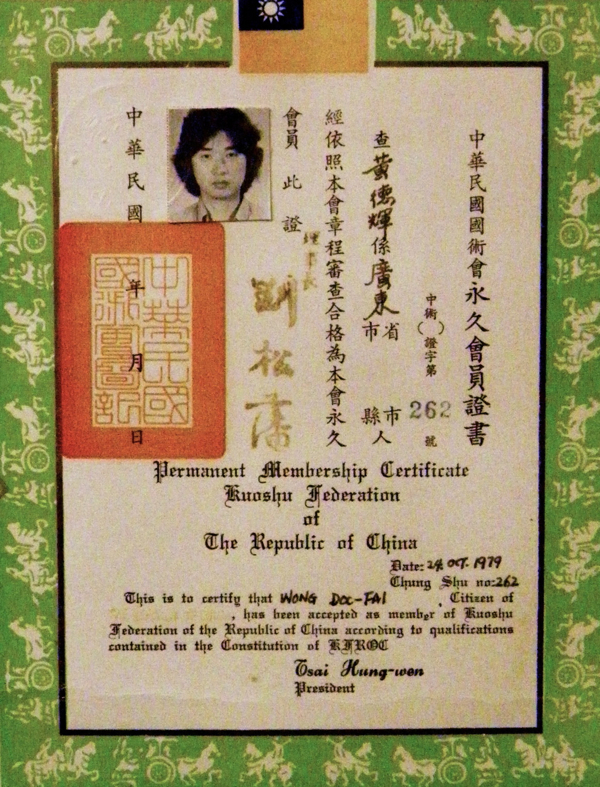 中華民國國術會永久會員證書
中術( )證字第262號
查黃德輝係廣東省市 市縣人
經依照本會章程審查合格為本會永久
會員此證
理事長
劉松藩
中華民國 年 月 日
中華民國國術會會訢
Permanent Membership Certificate
Kuoshu Federation
of
The Republic of China
Date: 24 OCT. 1979
Chung Shu no:262
This is to certify that WONG DOC-FAI , Citizen of
, has been accepted as member of Kuoshu
Federation of the Republic of China according to qualifications
contained in the Constitution of KFROC
Tsai Hung-wen
President